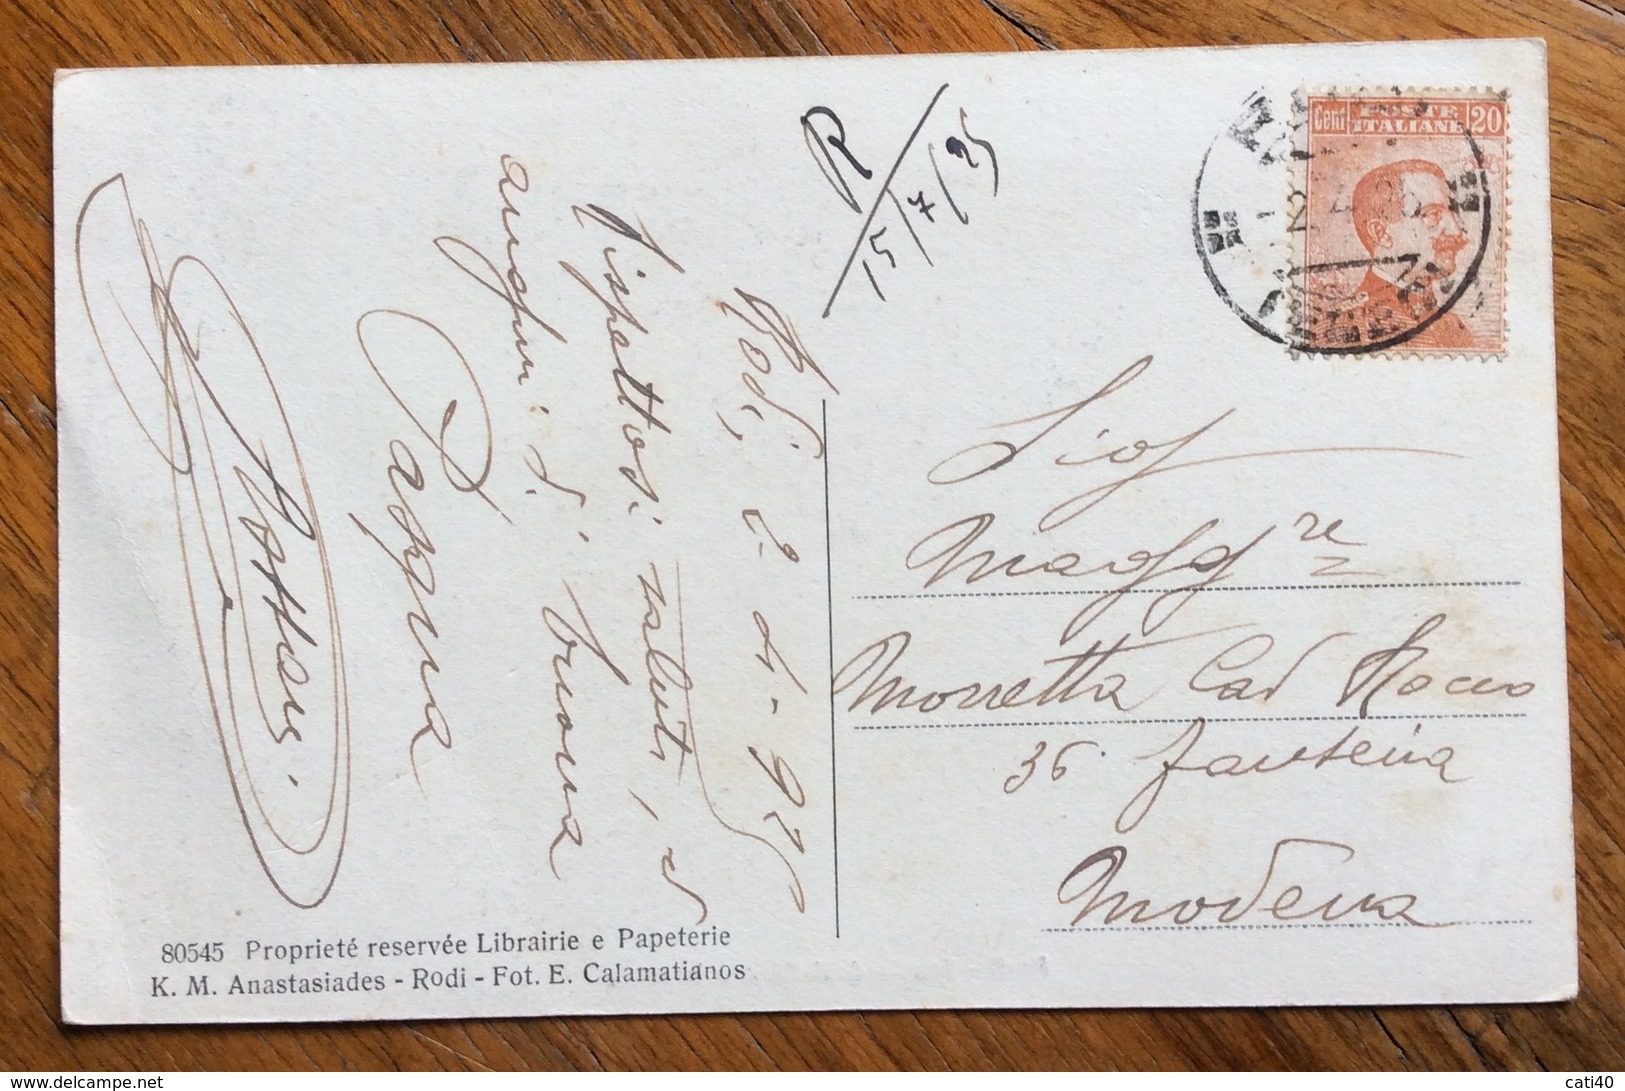 R
15/7/25
Cent POSTE ITALIANE 20
Rodi, 2-4-925
rispettosi saluti, ed
auguri di buona
Pasqua
Sig
Maggre
Morretta Cav Rocco
36 fanteria
Modena
80545 Proprieté reservée Librairie e Papeterie
K. M. Anastasiades - Rodi - Fot. E. Calamatianos
cati40
www.delcampe.net